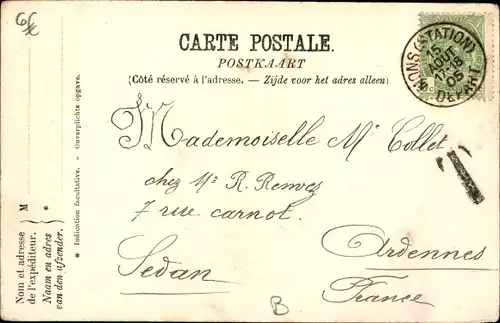 6£
CARTE POSTALE.
POSTKAART
(Côté réservé à l'adresse. — Zijde voor het adres alleen)
MONS (STATION)
15
AOUT
17-18
05
DEPART
T
Mademoiselle M. Collet
chez Mr R. Renvez
7 rue carnot.
Ardennes
Sedan
France
B
Nom et adresse
de l'expéditeur.
Naam en adres
van den afzender.
M
*
* Indication facultative. - Onverplichte opgave.